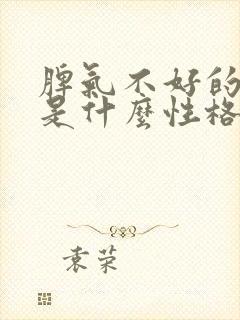 脾氣不好的
是什麼性格
袁荣